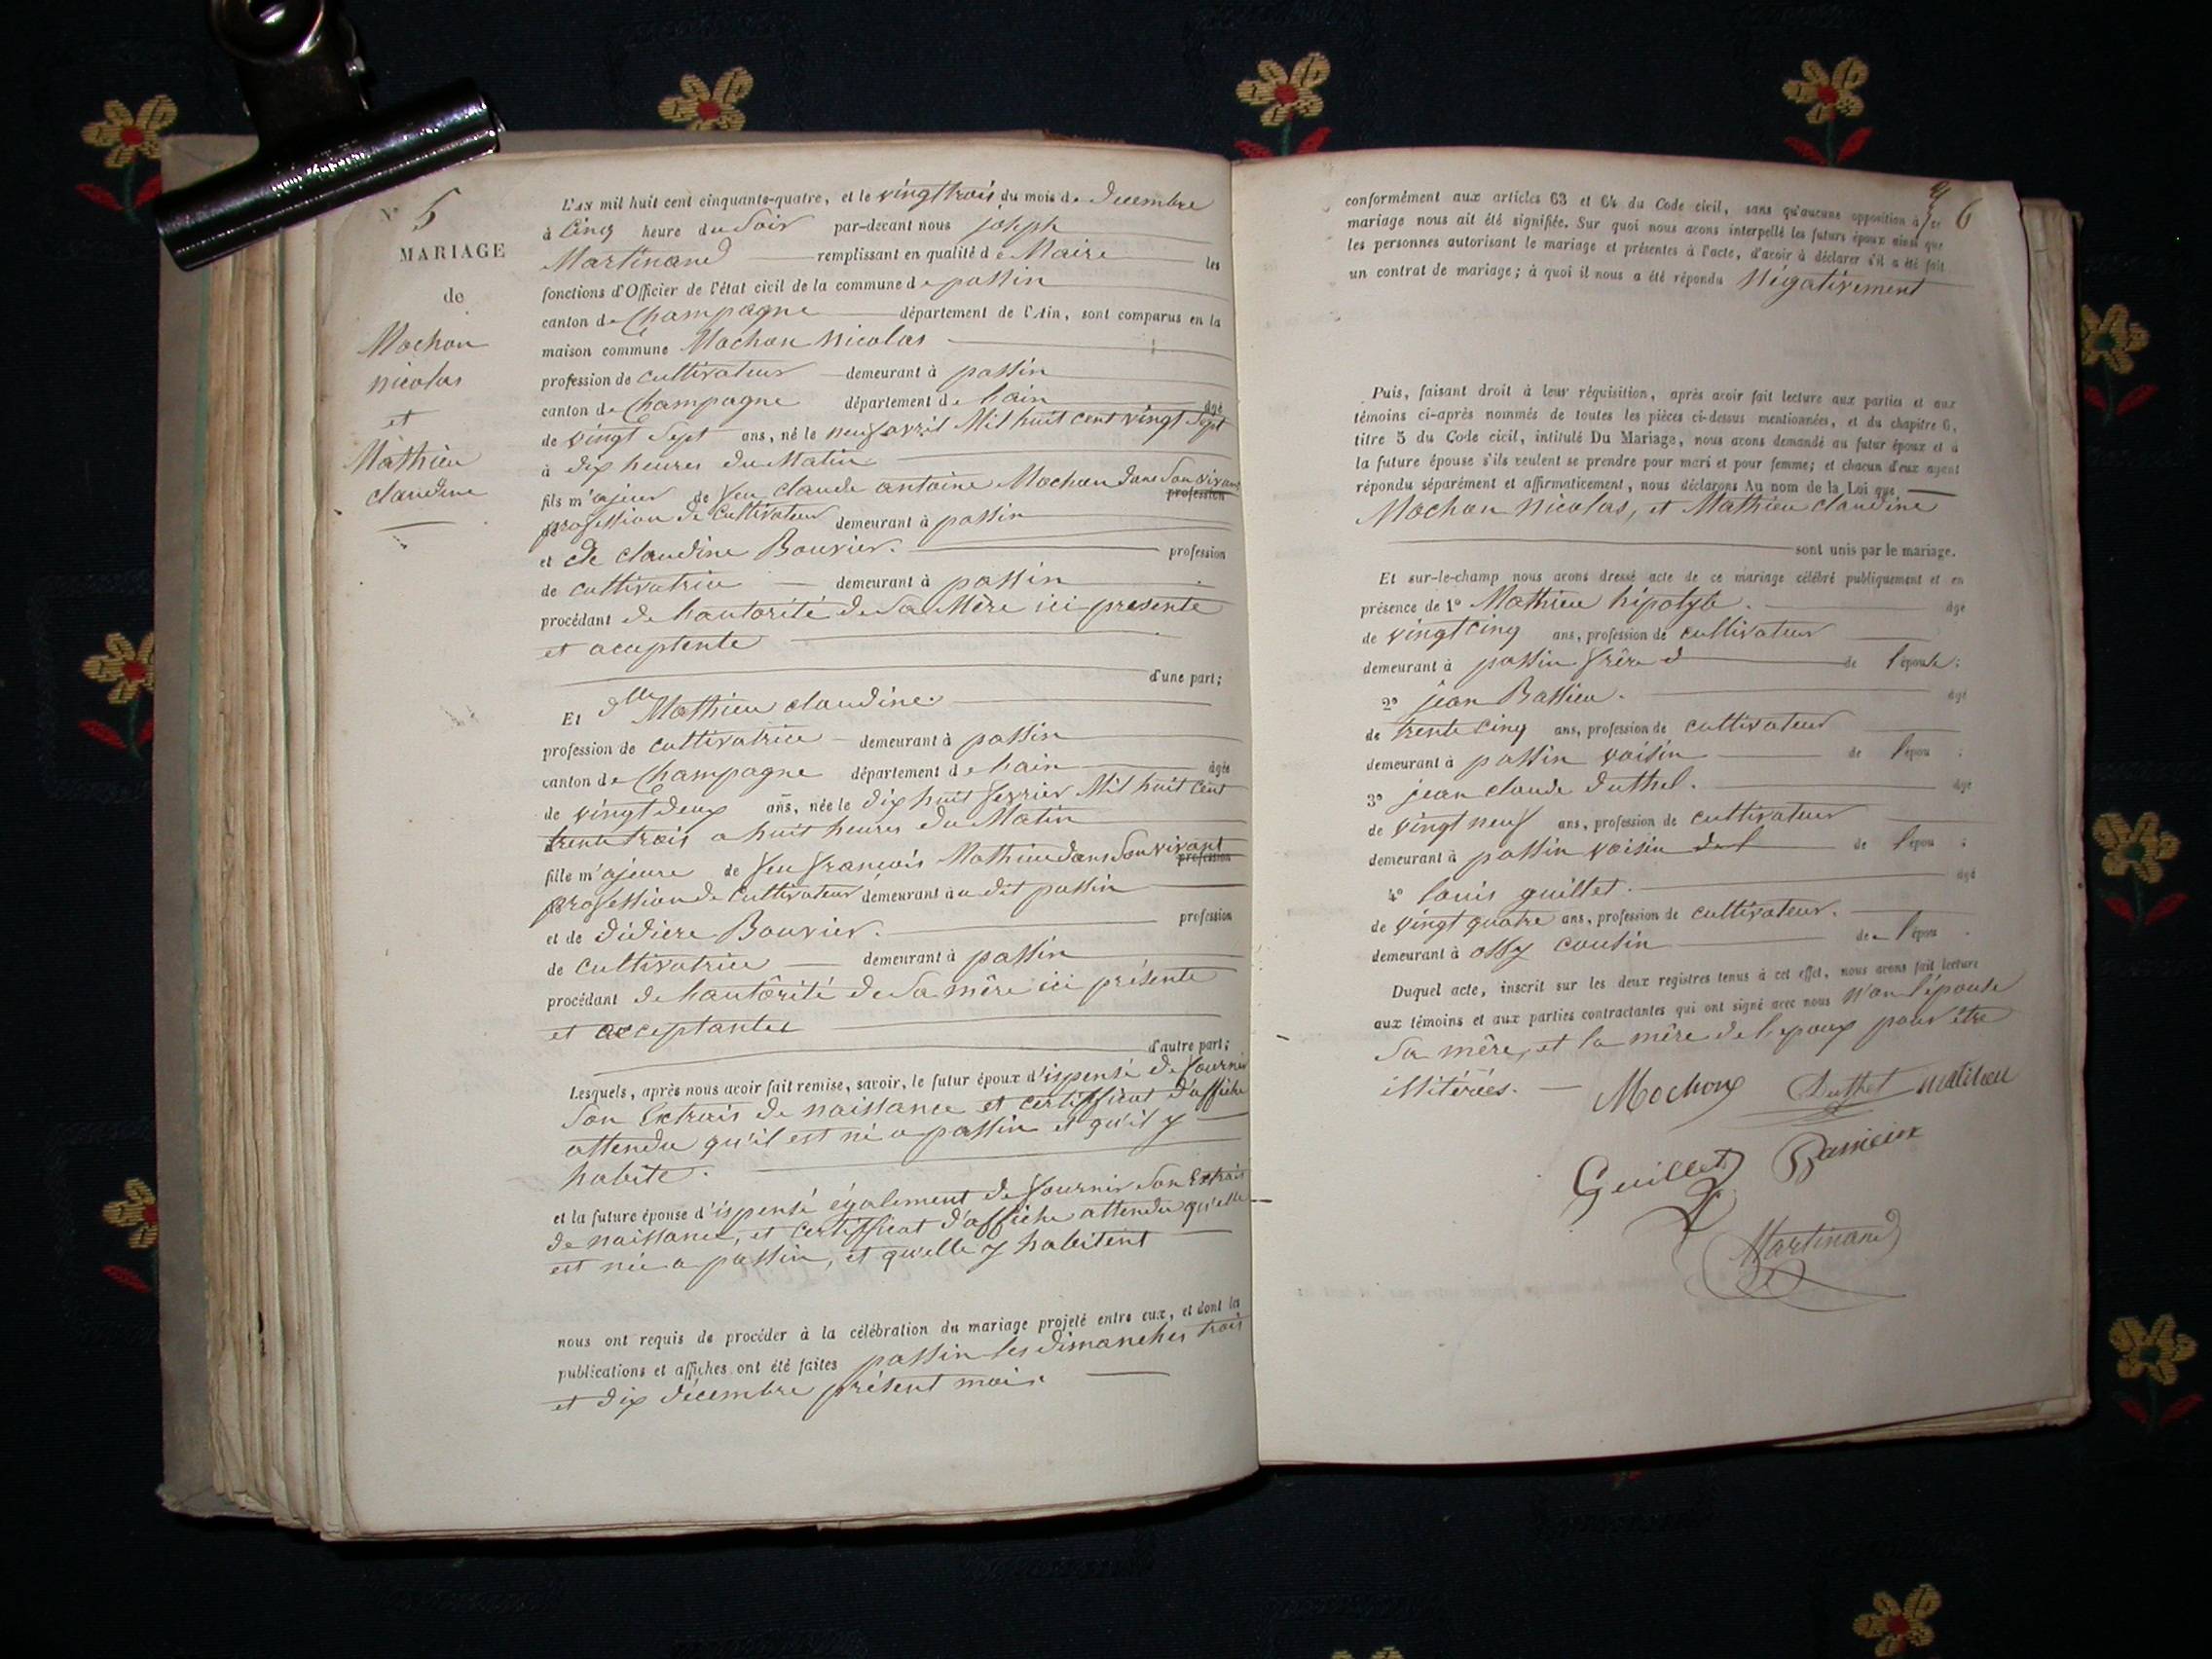 N° 5
MARIAGE
de
Mochon
nicolas
et
Mathieu
claudine
L'AN mil huit cent cinquante-quatre, et le vingt trois du mois de decembre
à Cinq heure du Soir par-devant nous joseph
Martinand remplissant en qualité de Maire les
fonctions d'Officier de l'état civil de la commune de passin
canton de Champagne département de l'Ain, sont comparus en la
maison commune Mochon nicolas
profession de cultivateur demeurant à passin
canton de Champagne département de lain âgé
de vingt Sept ans, né le neuf avril Mil huit cent vingt Sept
à dix heures du Matin
fils m'ajeur de feu claude antoine Mochon dans Son vivant
profession
profession de Cultivateur demeurant à passin
et de claudine Bouvier. profession
de cultivatrice demeurant à passin
procédant de lautorité de Sa Mère ici presente
et acceptente
d'une part;
Et dlle Mathieu claudine
profession de cultivatrice demeurant à passin
canton de Champagne département de lain âgée
de vingt deux ans, née le dix huit fevrier Mil huit cent
trente trois a huit heures du Matin
fille m'ajeure de feu francois Mathieu dans Son vivant
profession
profession de Cultivateur demeurant au dit passin
et de didiere Bouvier. profession
de cultivatrice demeurant à passin
procédant de lautôrité de Sa mêre ici présente
et acceptantee
d'autre part;
Lesquels, après nous avoir fait remise, savoir, le futur époux d'ispensé de fournir
Son Extrais de naissance et certifficat d'affiche
attendu qu'il est né a passin et qu'il y
habite.
et la future épouse d'ispensé également de fournir Son Extrais
de naissance, et certifficat d'affiche attendu qu'elle
est née a passin, et qu'elle y habitent
nous ont requis de procéder à la célébration du mariage projeté entre eux, et dont les
publications et affiches ont été faites passin les dimanches trois
et dix décembre présent mois
6
conformément aux articles 63 et 64 du Code civil, sans qu'aucune opposition à ce
mariage nous ait été signifiée. Sur quoi nous avons interpellé les futurs époux ainsi que
les personnes autorisant le mariage et présentes à l'acte, d'avoir à déclarer s'il a été fait
un contrat de mariage; à quoi il nous a été répondu Négativement
Puis, faisant droit à leur réquisition, après avoir fait lecture aux parties et aux
témoins ci-après nommés de toutes les pièces ci-dessus mentionnées, et du chapitre 6,
titre 5 du Code civil, intitulé Du Mariage, nous avons demandé au futur époux et à
la future épouse s'ils veulent se prendre pour mari et pour femme; et chacun d'eux ayant
répondu séparément et affirmativement, nous déclarons Au nom de la Loi que
Mochon Nicolas, et Mathieu claudine
sont unis par le mariage.
Et sur-le-champ nous avons dressé acte de ce mariage célébré publiquement et en
présence de 1° Mathieu hipolyte. âgé
de vingt cinq ans, profession de cultivateur
demeurant à passin frère d de l'épouse;
2° jean Bassieu. âgé
de trente cinq ans, profession de cultivateur
demeurant à passin voisin de l'épou ;
3° jean claude duthel. âgé
de vingt neuf ans, profession de cultivateur
demeurant à passin voisin de l'épou ;
4° louis guillet. âgé
de vingt quatre ans, profession de cultivateur.
demeurant à ossy cousin de l'épou .
Duquel acte, inscrit sur les deux registres tenus à cet effet, nous avons fait lecture
aux témoins et aux parties contractantes qui ont signé avec nous n'on l'épouse
Sa mêre, et la mêre de l'epoux pour être
illitérées. Mochon Duthel Mathieu
Guillet Bassieux
Martinand